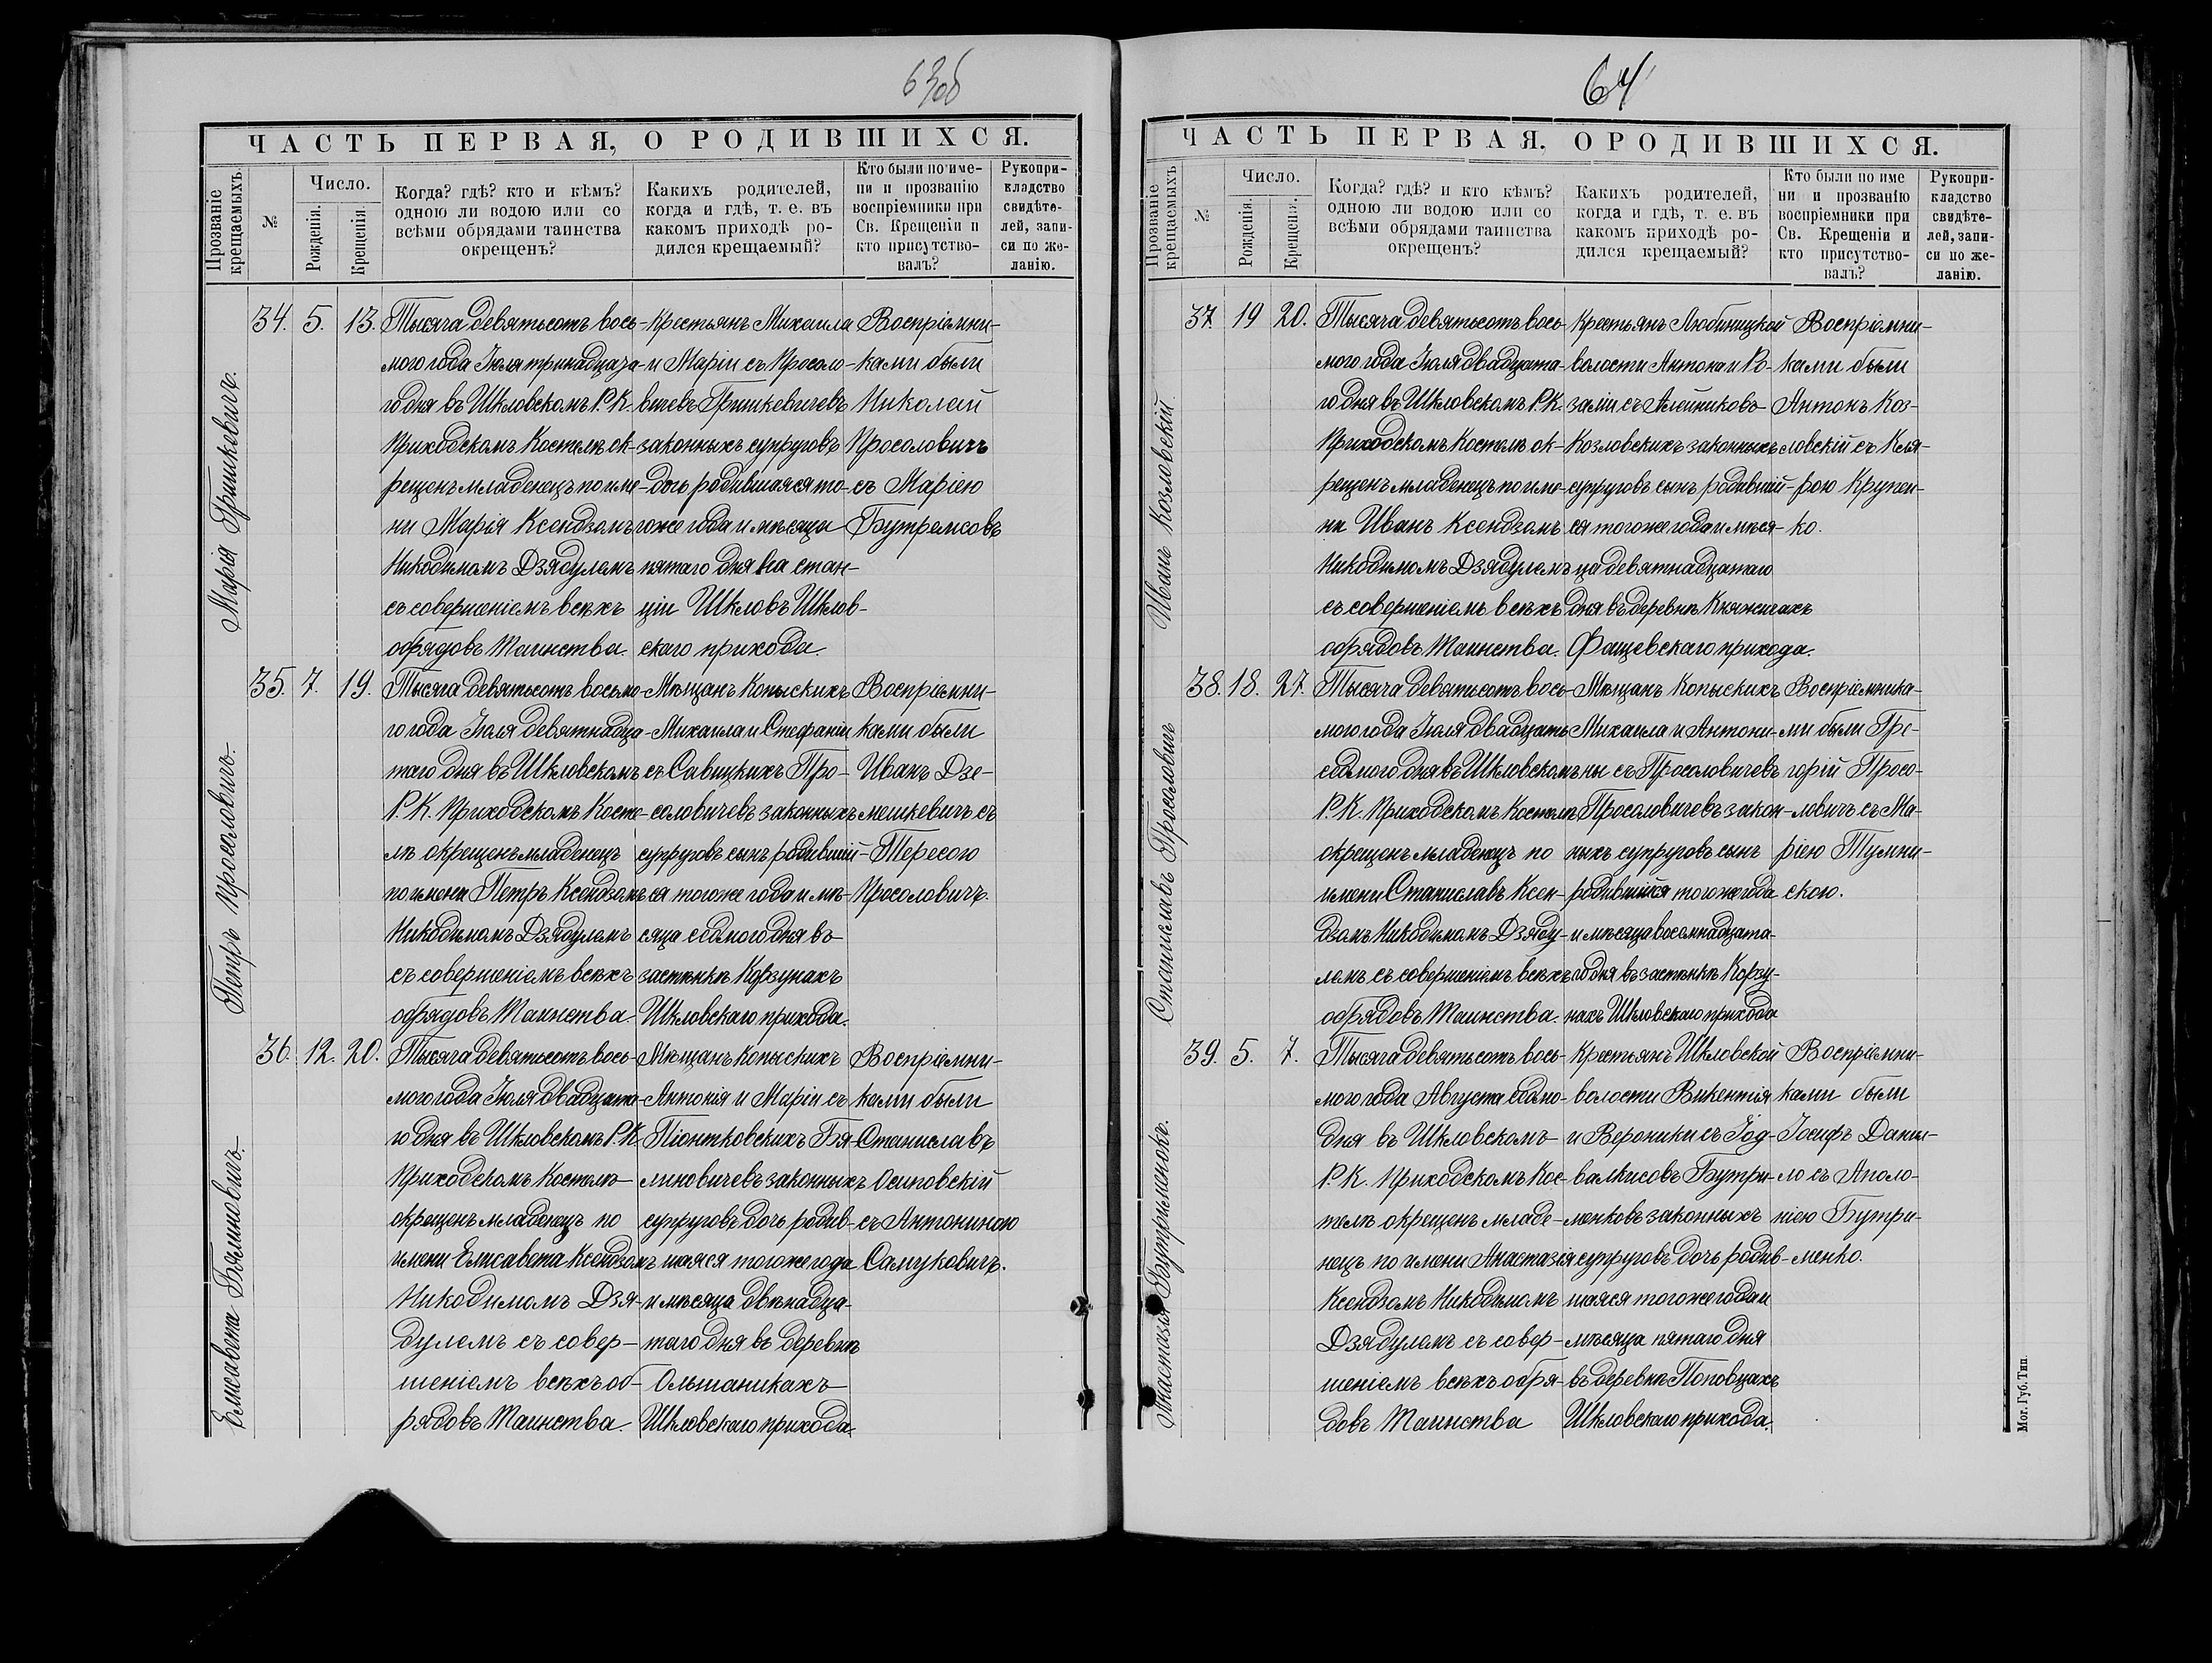 63об
ЧАСТЬ ПЕРВАЯ, О РОДИВШИХСЯ.
Прозваніе крещаемыхъ.
№
Число.
Рожденія.
Крещенія.
Когда? гдѣ? кто и кѣмъ?
одною ли водою или со
всѣми обрядами таинства
окрещенъ?
Какихъ родителей,
когда и гдѣ, т. е. въ
какомъ приходѣ ро-
дился крещаемый?
Кто были по име-
ни и прозванію
воспріемники при
Св. Крещеніи и
кто присутство-
валъ?
Рукопри-
кладство
свидѣте-
лей, запи-
си по же-
ланію.
Марія Гришкевичъ.
34. 5. 13.
Тысяча девятьсотъ вось-
мого года Іюля тринадцата-
го дня въ Шкловскомъ Р. К.
Приходскомъ Костелѣ ок-
рещенъ младенецъ по име-
ни Марія Ксендзомъ
Никодимомъ Дзядулемъ
съ совершеніемъ всѣхъ
обрядовъ Таинства.
Крестьянъ Михаила
и Маріи съ Просоло-
вичевъ Гришкевичевъ
законныхъ супруговъ
дочь родившаяся то-
гоже года и мѣсяца
пятаго дня на стан-
ціи Шкловъ Шклов-
скаго прихода.
Воспріемни-
ками были
Николай
Просоловичъ
съ Маріею
Бутрамсовъ
Петръ Просоловичъ.
35. 7. 19.
Тысяча девятьсотъ восьмо-
го года Іюля девятнадца-
таго дня въ Шкловскомъ
Р. К. Приходскомъ Косте-
лѣ окрещенъ младенецъ
по имени Петръ Ксендзомъ
Никодимомъ Дзядулемъ
съ совершеніемъ всѣхъ
обрядовъ Таинства.
Мѣщанъ Копыскихъ
Михаила и Стефаніи
съ Савицкихъ Про-
соловичевъ законныхъ
супруговъ сынъ родивший-
ся тогоже года и мѣ-
сяца седмого дня въ
застѣнкѣ Корзунахъ
Шкловскаго прихода.
Воспріемни-
ками были
Иванъ Дзе-
мешкевичъ съ
Тересою
Просоловичъ.
Елисавета Бялиновичъ.
36. 12. 20.
Тысяча девятьсотъ вось-
мого года Іюля двадцата-
го дня въ Шкловскомъ Р. К.
Приходскомъ Костелѣ
окрещенъ младенецъ по
имени Елисавета Ксендзомъ
Никодимомъ Дзя-
дулемъ съ совер-
шеніемъ всѣхъ об-
рядовъ Таинства.
Мѣщанъ Копыскихъ
Антонія и Маріи съ
Піонтковскихъ Бя-
линовичевъ законныхъ
супруговъ дочь родив-
шаяся тогоже года
и мѣсяца двѣнадца-
таго дня въ деревнѣ
Ольшаникахъ
Шкловскаго прихода.
Воспріемни-
ками были
Станиславъ
Осиповскій
съ Антониною
Самуковичъ.
64
ЧАСТЬ ПЕРВАЯ, О РОДИВШИХСЯ.
Прозваніе крещаемыхъ
№
Число.
Рожденія.
Крещенія.
Когда? гдѣ? и кто кѣмъ?
одною ли водою или со
всѣми обрядами таинства
окрещенъ?
Какихъ родителей,
когда и гдѣ, т. е. въ
какомъ приходѣ ро-
дился крещаемый?
Кто были по име
ни и прозванію
воспріемники при
Св. Крещеніи и
кто присутство-
валъ?
Рукопри-
кладство
свидѣте-
лей, запи-
си по же-
ланію.
Иванъ Козловскій
37 19 20.
Тысяча девятьсотъ вось-
мого года Іюля двадцата-
го дня въ Шкловскомъ Р. К.
Приходскомъ Костелѣ ок-
рещенъ младенецъ по име-
ни Иванъ Ксендзомъ
Никодимомъ Дзядулемъ
съ совершеніемъ всѣхъ
обрядовъ Таинства.
Крестьянъ Любиницкой
волости Антона и Ро-
заліи съ Алейниковъ
Козловскихъ законныхъ
супруговъ сынъ родивший-
ся тогоже года и мѣся-
ца девятнадцатаго
дня въ деревнѣ Княжичахъ
Фащевскаго прихода.
Воспріемни-
ками были
Антонъ Коз-
ловскій съ Кля-
рою Крупен-
ко.
Станиславъ Просоловичъ
38. 18. 27.
Тысяча девятьсотъ вось-
мого года Іюля двадцать
седмого дня въ Шкловскомъ
Р. К. Приходскомъ Костелѣ
окрещенъ младенецъ по
имени Станиславъ Ксен-
дзомъ Никодимомъ Дзяду-
лемъ съ совершеніемъ всѣхъ
обрядовъ Таинства.
Мѣщанъ Копыскихъ
Михаила и Антони-
ны съ Просоловичевъ
Просоловичевъ закон-
ныхъ супруговъ сынъ
родившійся тогоже года
и мѣсяца восемнадцата-
го дня въ застѣнкѣ Корзу-
нахъ Шкловскаго прихода
Воспріемника-
ми были Гре-
горій Просо-
ловичъ съ Ма-
ріею Тумни-
скою.
Анастазія Бутрименокъ.
39. 5. 7.
Тысяча девятьсотъ вось-
мого года Августа седмо-
дня въ Шкловскомъ
Р. К. Приходскомъ Кос-
телѣ окрещенъ младе-
нецъ по имени Анастазія
Ксендзомъ Никодимомъ
Дзядулемъ съ совер-
шеніемъ всѣхъ обря-
довъ Таинства
Крестьянъ Шкловской
волости Викентія
и Вероники съ Іод-
валкисовъ Бутри-
менковъ законныхъ
супруговъ дочь родив-
шаяся тогоже года и
мѣсяца пятаго дня
въ деревнѣ Поповцахъ
Шкловскаго прихода.
Воспріемни-
ками были
Іосифъ Данил-
ло съ Аполо-
ніею Бутри-
менко.
Мог. Губ. Тип.